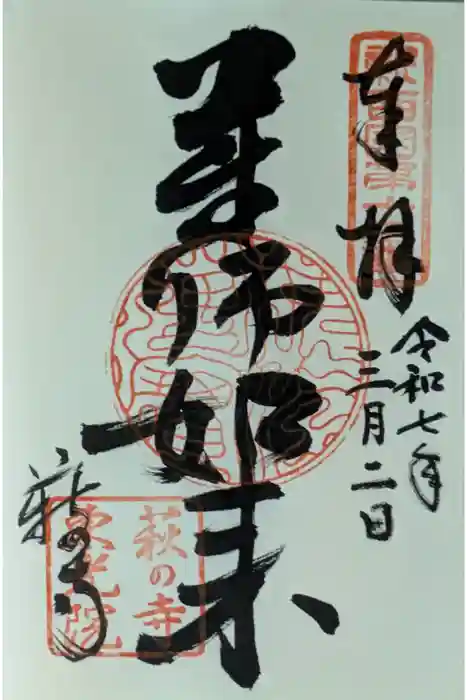 奉拝
令和七年
三月二日
薬師如来
萩の寺
東光院